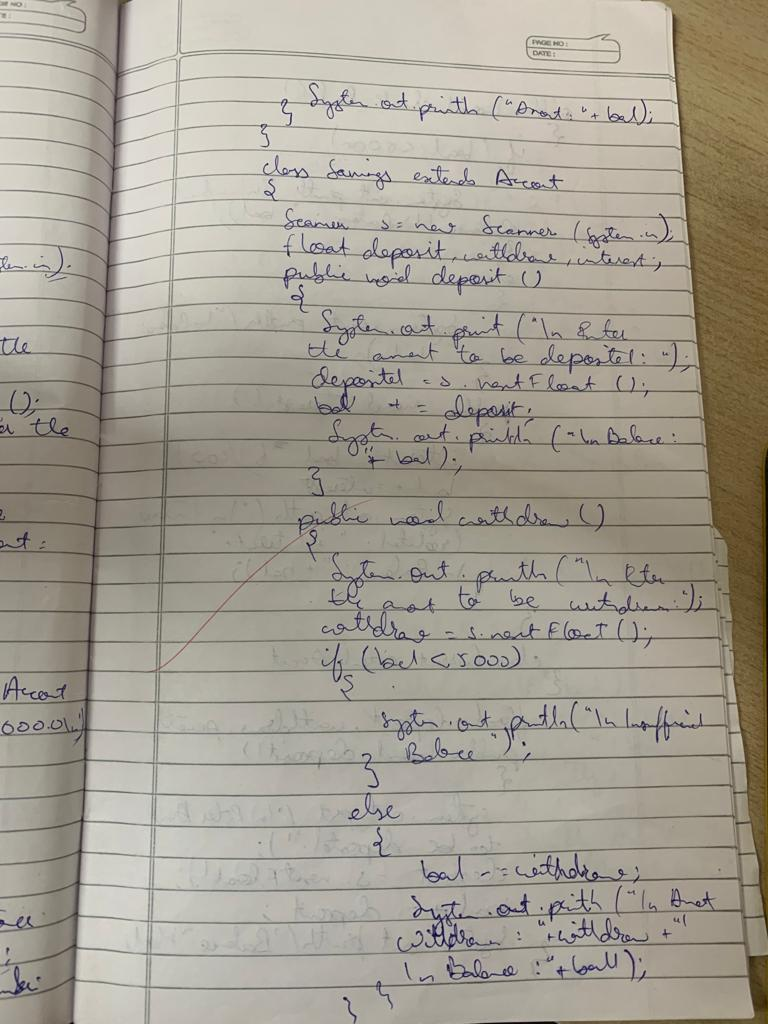 PAGE NO:
DATE:
System.out.println ("Amount: "+ bal);
}
}
class Savings extends Account
{
Scanner s = new Scanner (System.in);
float deposit, withdraw, interest;
public void deposit ()
{
System.out.print ("\n Enter
the amount to be deposited: ");
deposited = s.nextFloat ();
bal += deposit;
System.out.println ("\n Balance:
"+ bal);
}
public void withdraw ()
{
System.out.println ("\n Enter
the amount to be withdrawn:");
withdraw = s.nextFloat ();
if (bal < 5000)
{
System.out.println("\n Insufficient
Balance ");
}
else
{
bal -= withdraw;
System.out.println ("\n Amount
withdrawn : "+withdraw +"
\n Balance :"+ bal);
}
}